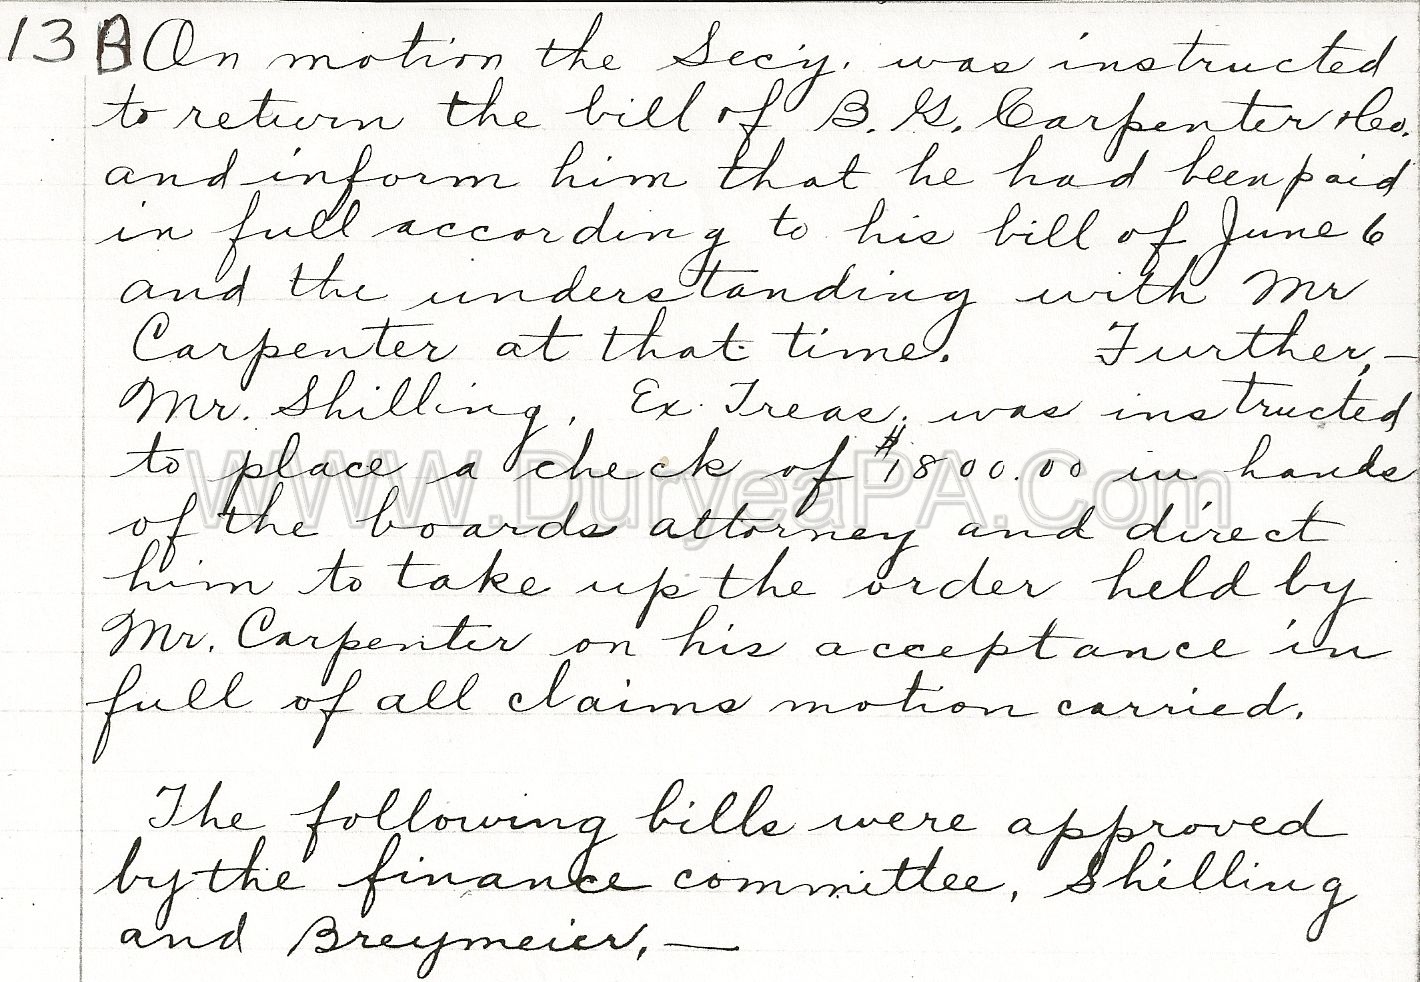 13 B On motion the Secy. was instructed
to return the bill of B. G. Carpenter & Co.
and inform him that he had been paid
in full according to his bill of June 6
and the understanding with Mr
Carpenter at that time. Further, —
Mr. Shilling, Ex. Treas. was instructed
to place a check of $1800.00 in hands
of the boards attorney and direct
him to take up the order held by
Mr. Carpenter on his acceptance in
full of all claims motion carried.
The following bills were approved
by the finance committee, Shilling
and Breymeier. —
WWW.DuryeaPA.Com